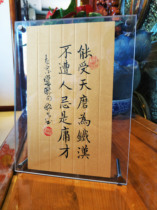 能受天磨為鐵漢
不遭人忌是庸才